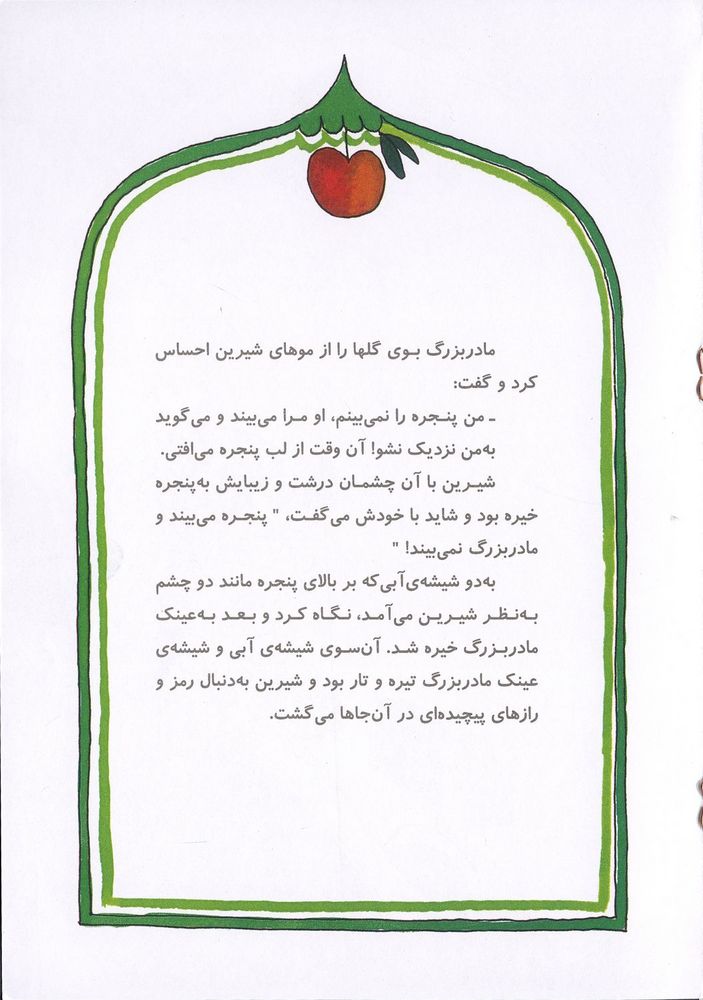 مادربزرگ بوی گلها را از موهای شیرین احساس
کرد و گفت:
ـ من پنجره را نمی‌بینم، او مرا می‌بیند و می‌گوید
به‌من نزدیک نشو! آن وقت از لب پنجره می‌افتی.
شیرین با آن چشمان درشت و زیبایش به‌پنجره
خیره بود و شاید با خودش می‌گفت، " پنجره می‌بیند و
مادربزرگ نمی‌بیند! "
به‌دو شیشه‌ی‌آبی‌که بر بالای پنجره مانند دو چشم
به‌نظر شیرین می‌آمد، نگاه کرد و بعد به‌عینک
مادربزرگ خیره شد. آن‌سوی شیشه‌ی آبی و شیشه‌ی
عینک مادربزرگ تیره و تار بود و شیرین به‌دنبال رمز و
رازهای پیچیده‌ای در آن‌جاها می‌گشت.